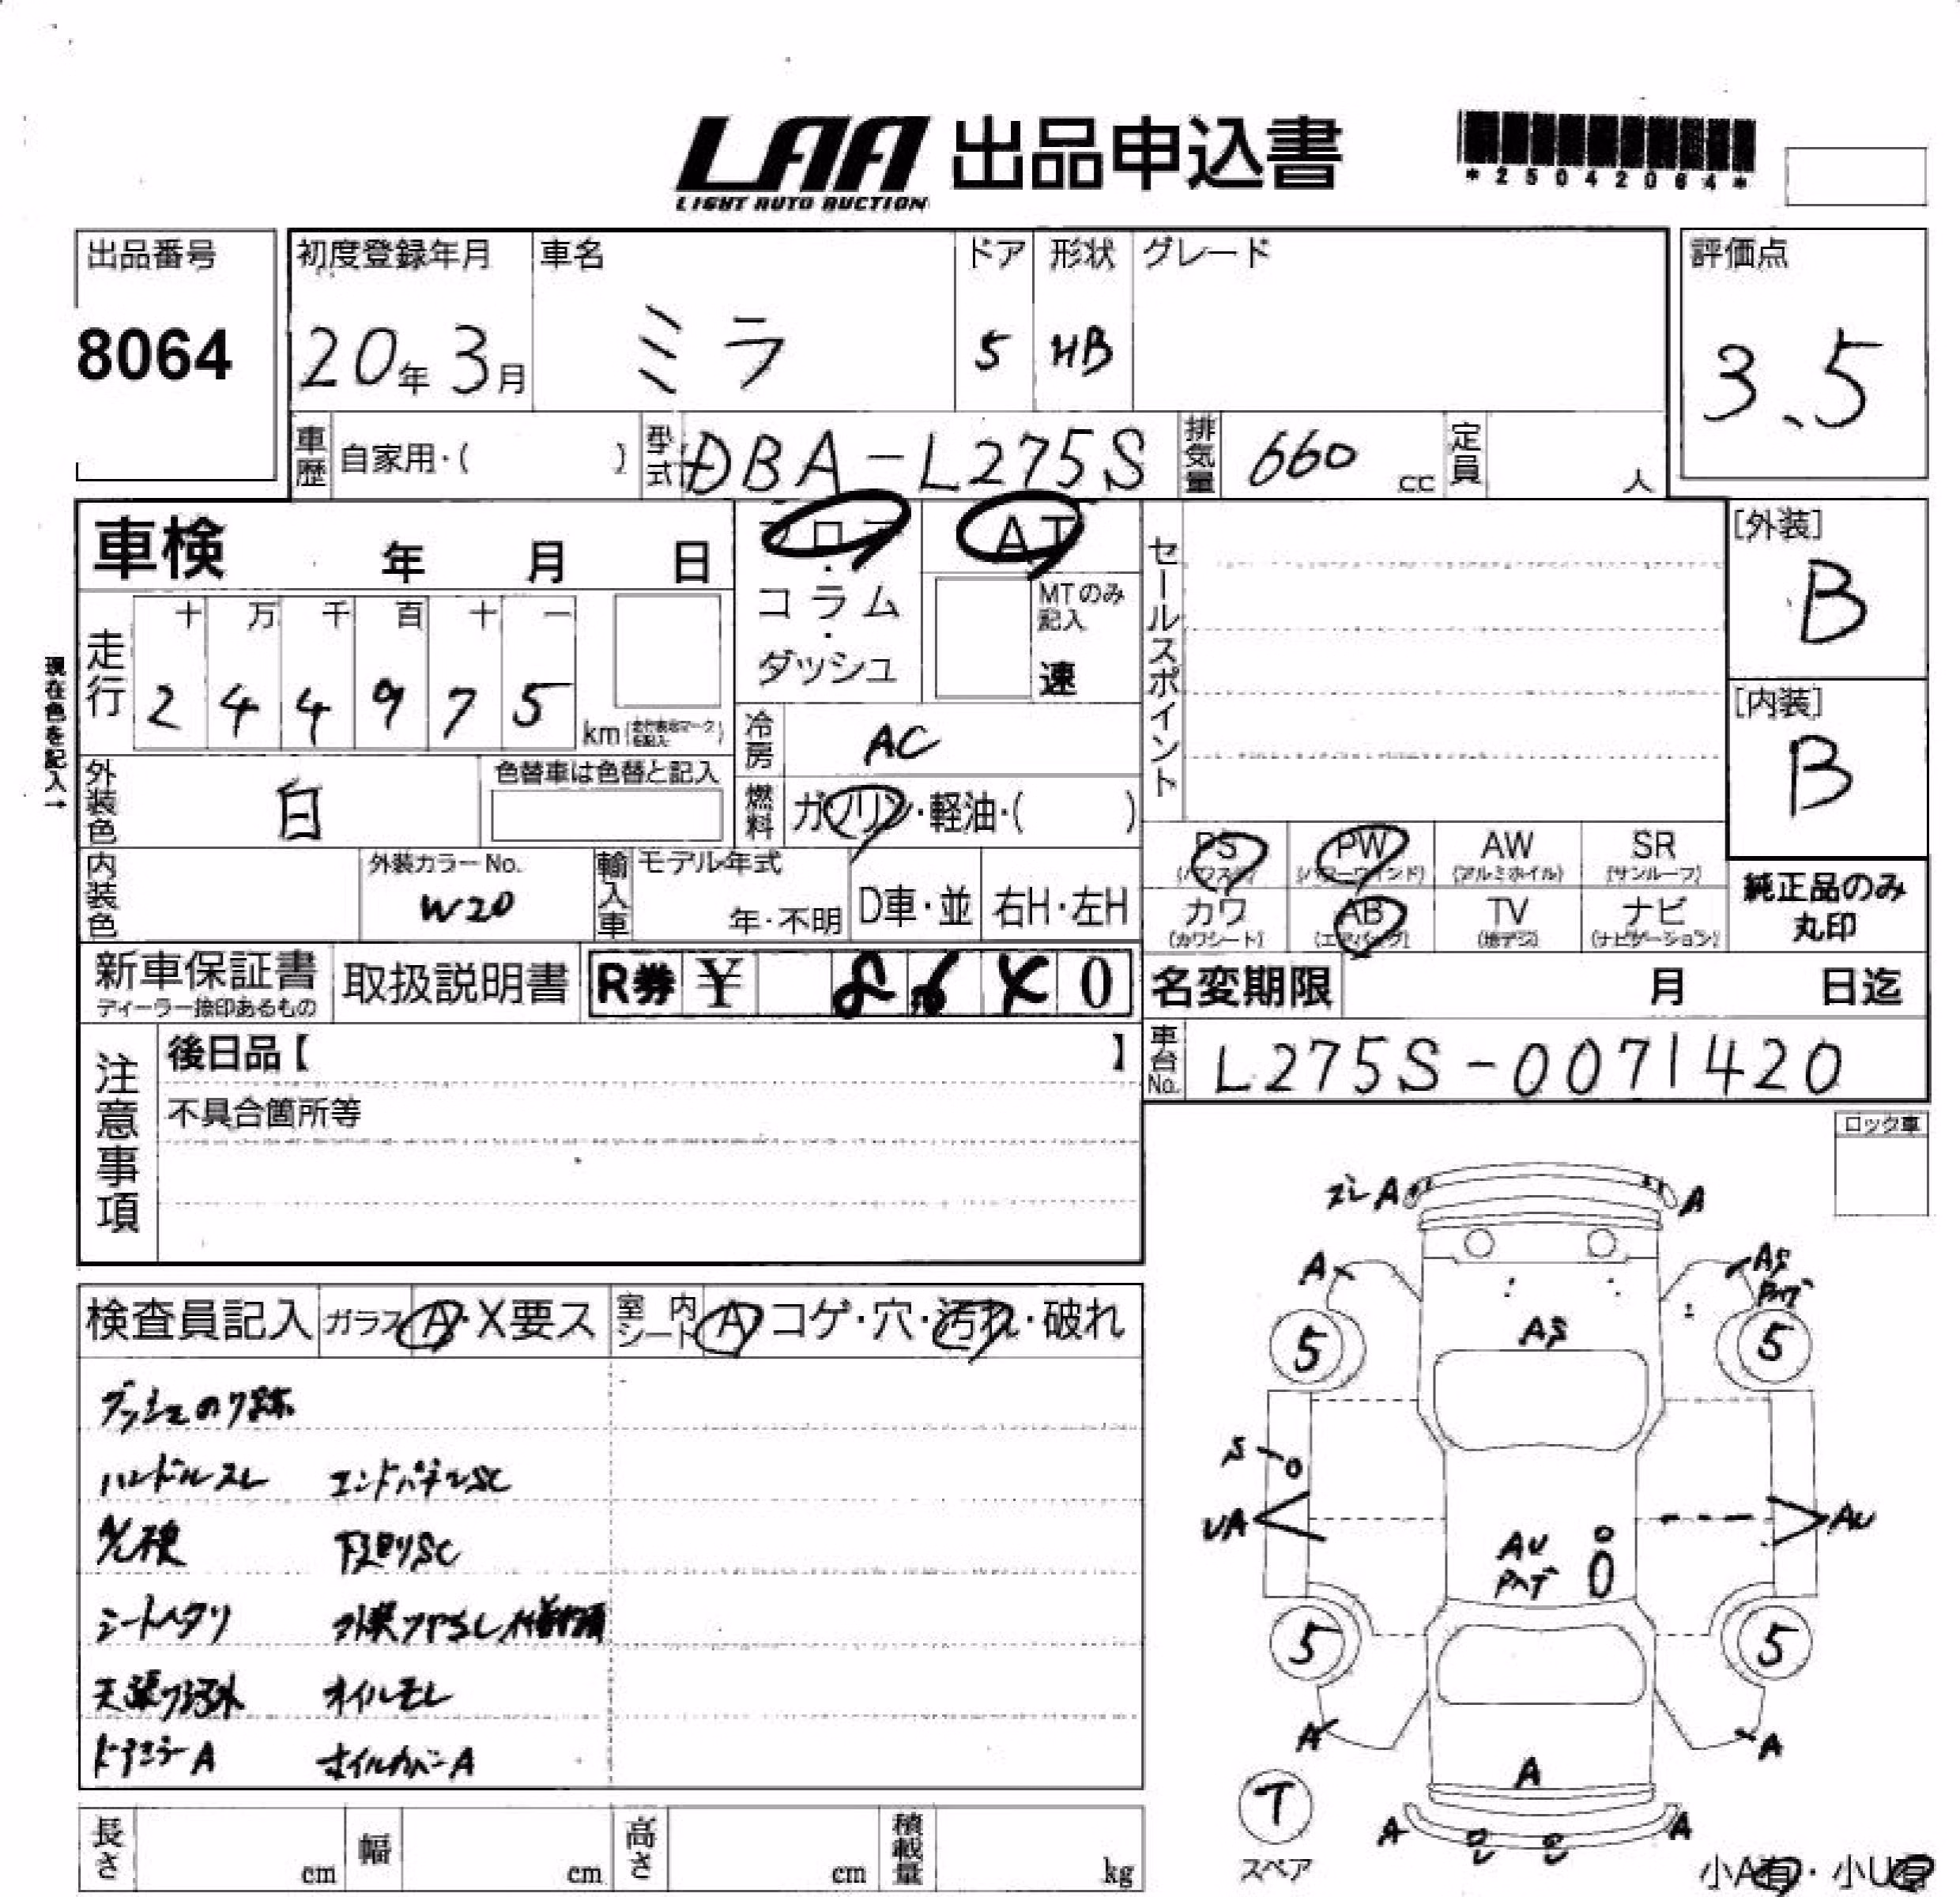 LAA 出品申込書
LIGHT AUTO AUCTION
*25042064*
出品番号 初度登録年月 車名 ドア 形状 グレード 評価点
8064 20年 3月 ミラ 5 HB 3.5
車歴 自家用・( ) 型式 DBA-L275S 排気量 660 cc 定員 人
車検 年 月 日 フロア AT [外装]
B
コラム MTのみ記入
ダッシュ 速
セールスポイント
現在色を記入→
走行 十 万 千 百 十 一
2 4 4 9 7 5 km
[内装]
B
冷房 AC
外装色 白 色替車は色替と記入
燃料 ガソリン・軽油・( )
内装色 外装カラーNo. 輸入車 モデル年式
W20 年・不明 D車・並 右H・左H
PS PW AW SR
(パワステ) (パワーウインド) (アルミホイル) (サンルーフ)
カワ AB TV ナビ
(カワシート) (エアバッグ) (地デジ) (ナビゲーション)
純正品のみ
丸印
新車保証書 取扱説明書 R券 ¥ 0
ディーラー捺印あるもの
名変期限 月 日迄
注意事項
後日品【 】
車台No. L275S-0071420
不具合箇所等
ロック車
検査員記入 ガラス A・X要ス 室内シート A コゲ・穴・汚れ・破れ
ダッシュのり跡
ハンドルスレ エンドパネルSC
下廻りSC
シートヘタリ
オイルモレ
ドアミラーA オイルカバーA
A A
A AS
AS
5 5
S
UA AU
AU
5 5
A A
A
T
A A
スペア
小A有・小U有
長さ cm 幅 cm 高さ cm 積載量 kg